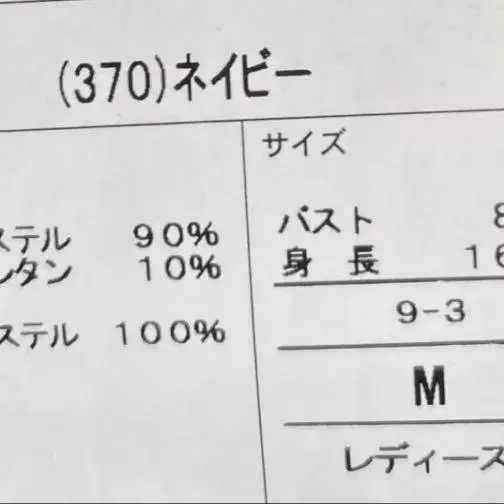 (370)ネイビー
サイズ
ステル 90%
レタン 10%
ステル 100%
バスト 8
身長 16
9-3
M
レディース